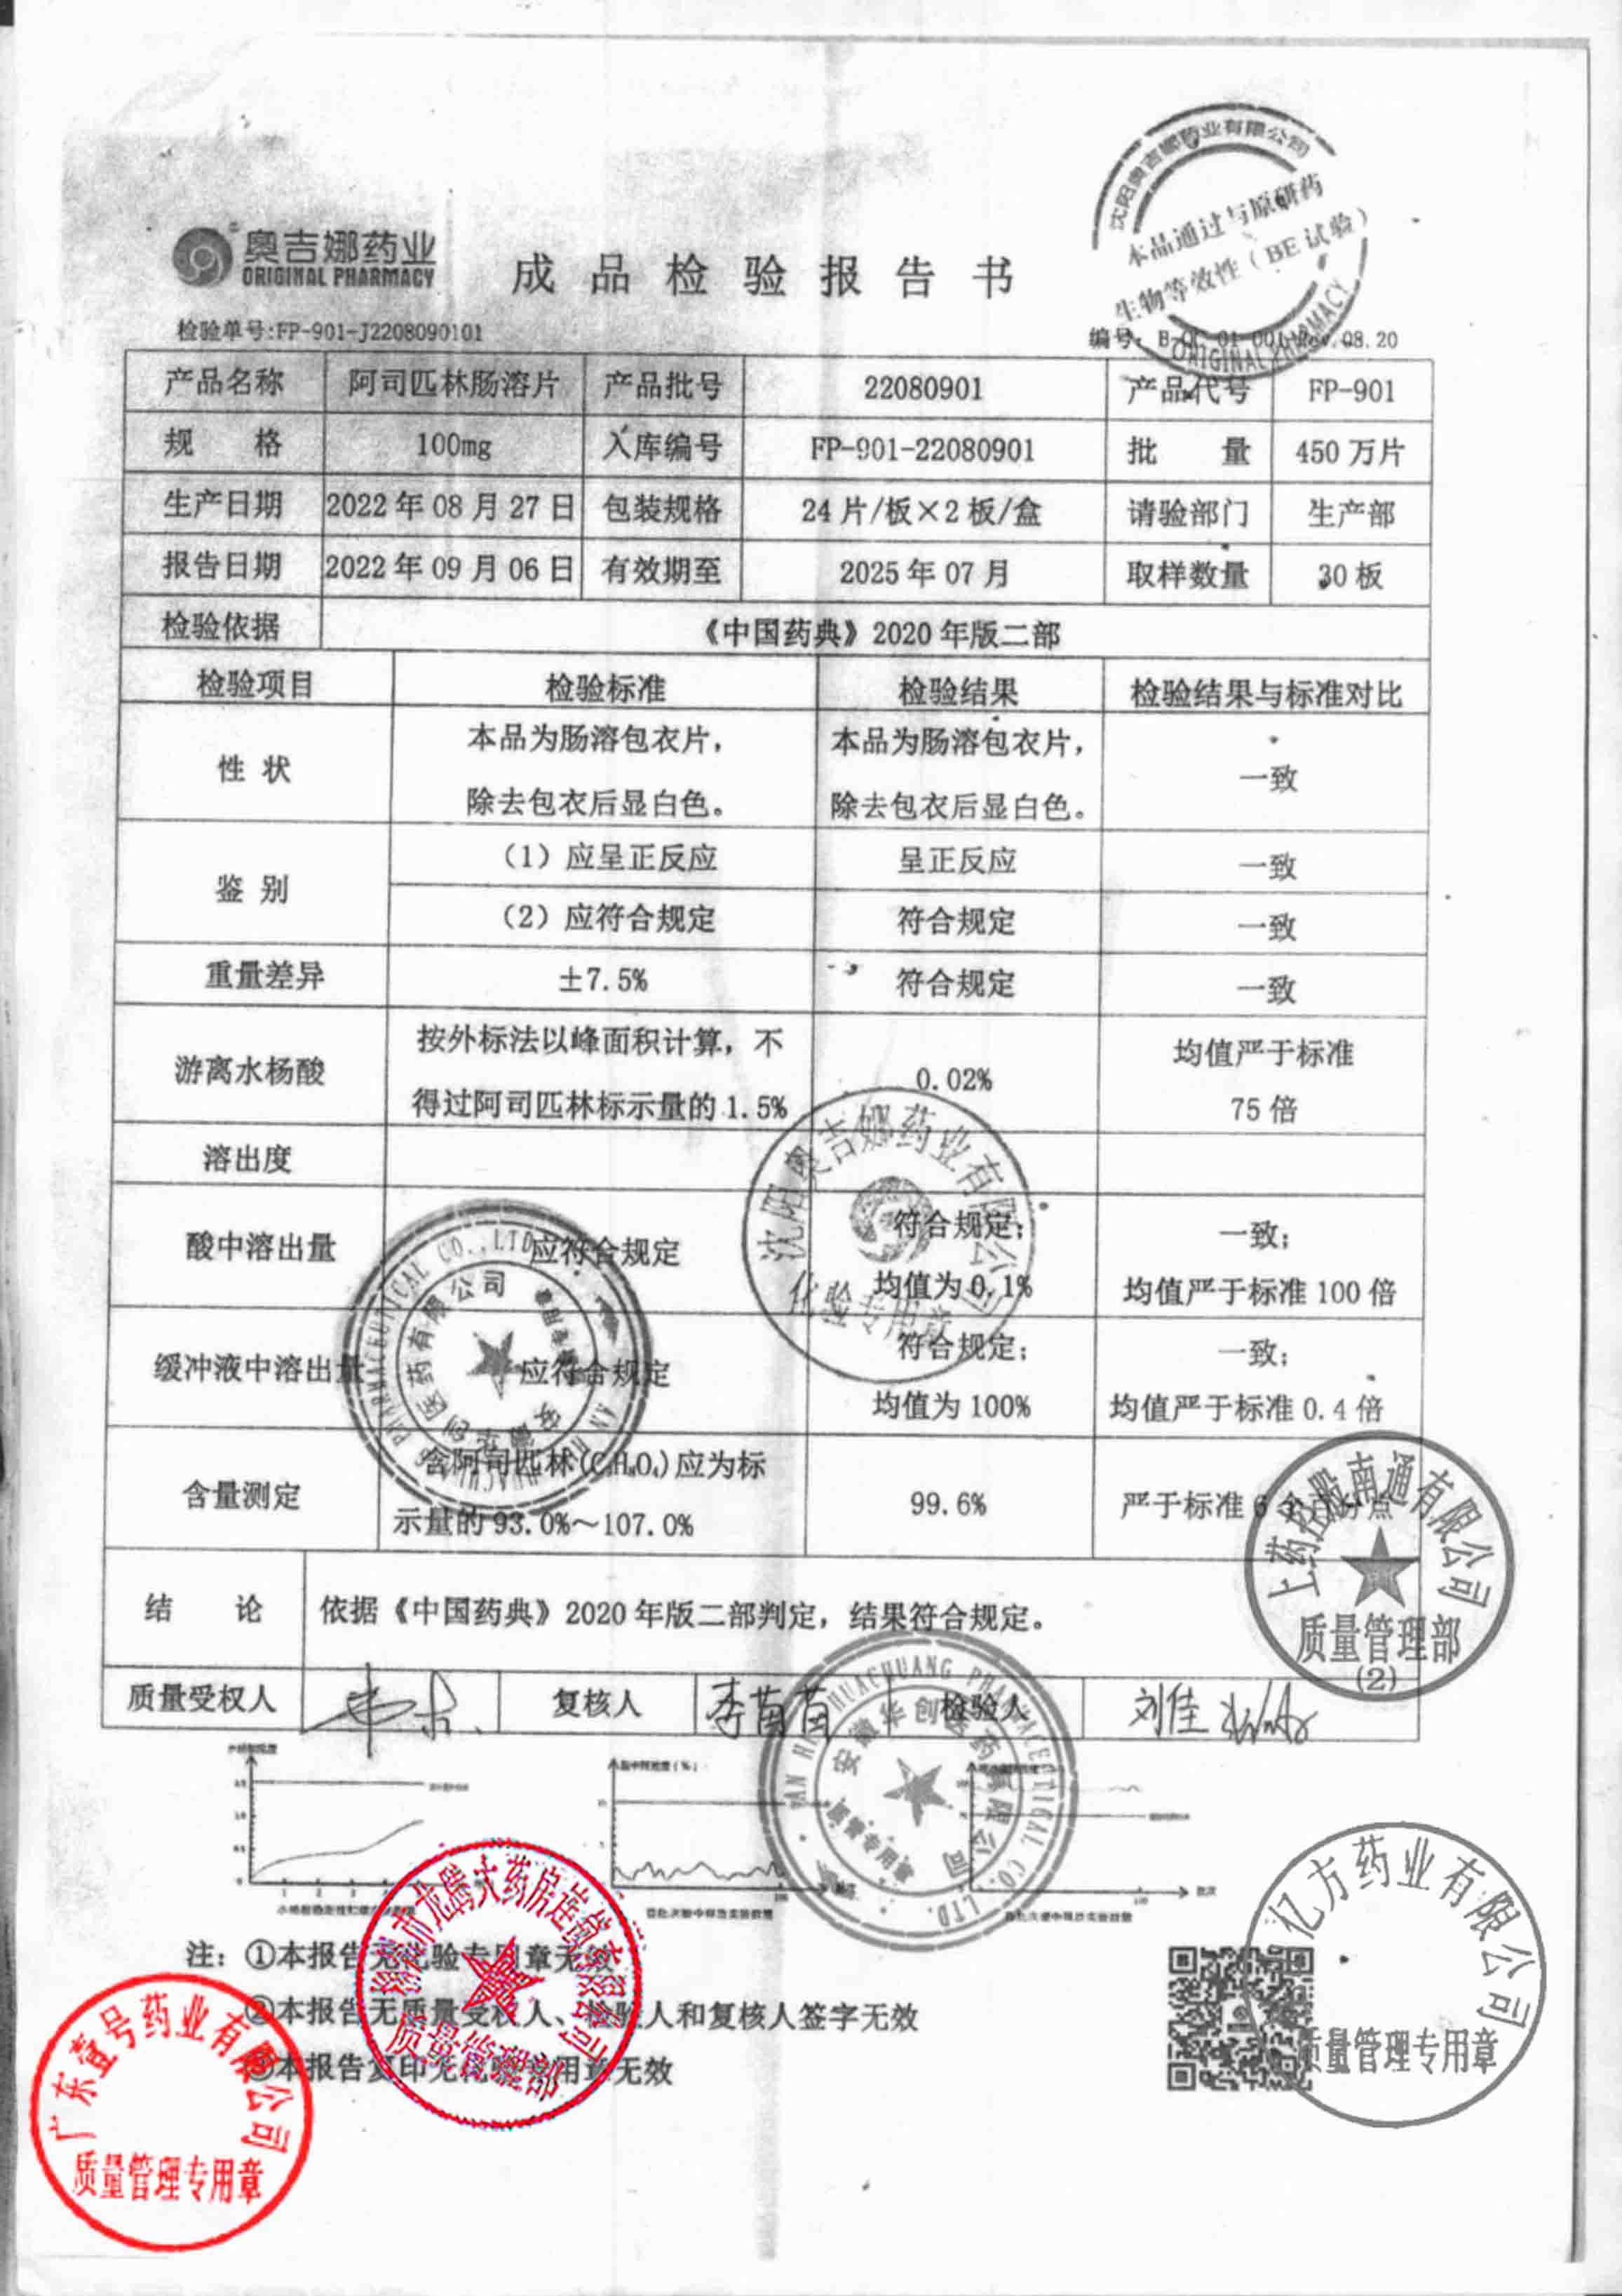 奥吉娜药业
ORIGINAL PHARMACY
成品检验报告书
沈阳奥吉娜药业有限公司
本品通过与原研药
生物等效性（BE试验）
ORIGINAL PHARMACY
检验单号:FP-901-J2208090101
编号: 08.20
产品名称 阿司匹林肠溶片 产品批号 22080901 产品代号 FP-901
规 格 100mg 入库编号 FP-901-22080901 批 量 450万片
生产日期 2022年08月27日 包装规格 24片/板×2板/盒 请验部门 生产部
报告日期 2022年09月06日 有效期至 2025年07月 取样数量 30板
检验依据 《中国药典》2020年版二部
检验项目 检验标准 检验结果 检验结果与标准对比
性 状 本品为肠溶包衣片， 除去包衣后显白色。 本品为肠溶包衣片， 除去包衣后显白色。 一致
鉴 别 （1）应呈正反应 呈正反应 一致
（2）应符合规定 符合规定 一致
重量差异 ±7.5% 符合规定 一致
游离水杨酸 按外标法以峰面积计算，不 得过阿司匹林标示量的1.5% 0.02% 均值严于标准 75倍
溶出度
酸中溶出量 应符合规定 符合规定； 均值为0.1% 一致； 均值严于标准100倍
缓冲液中溶出量 应符合规定 符合规定； 均值为100% 一致； 均值严于标准0.4倍
含量测定 含阿司匹林(C₉H₈O₄)应为标 示量的93.0%～107.0% 99.6% 严于标准6
结 论 依据《中国药典》2020年版二部判定，结果符合规定。
质量受权人 复核人 李苗苗 检验人 刘佳
沈阳奥吉娜药业有限公司
化验专用章
安徽华创医药有限公司
AN HUI HUACHUANG PHARMACEUTICAL CO.,LTD.
上药控股南通有限公司
质量管理部
(2)
安徽华创医药有限公司
质管专用章
AN HUI HUACHUANG PHARMACEUTICAL CO.,LTD.
注：①本报告无化验专用章无效
②本报告无质量受权人、检验人和复核人签字无效
③本报告复印无化验专用章无效
龙腾大药房连锁有限公司
质量管理部
广东壹号药业有限公司
质量管理专用章
亿方药业有限公司
质量管理专用章